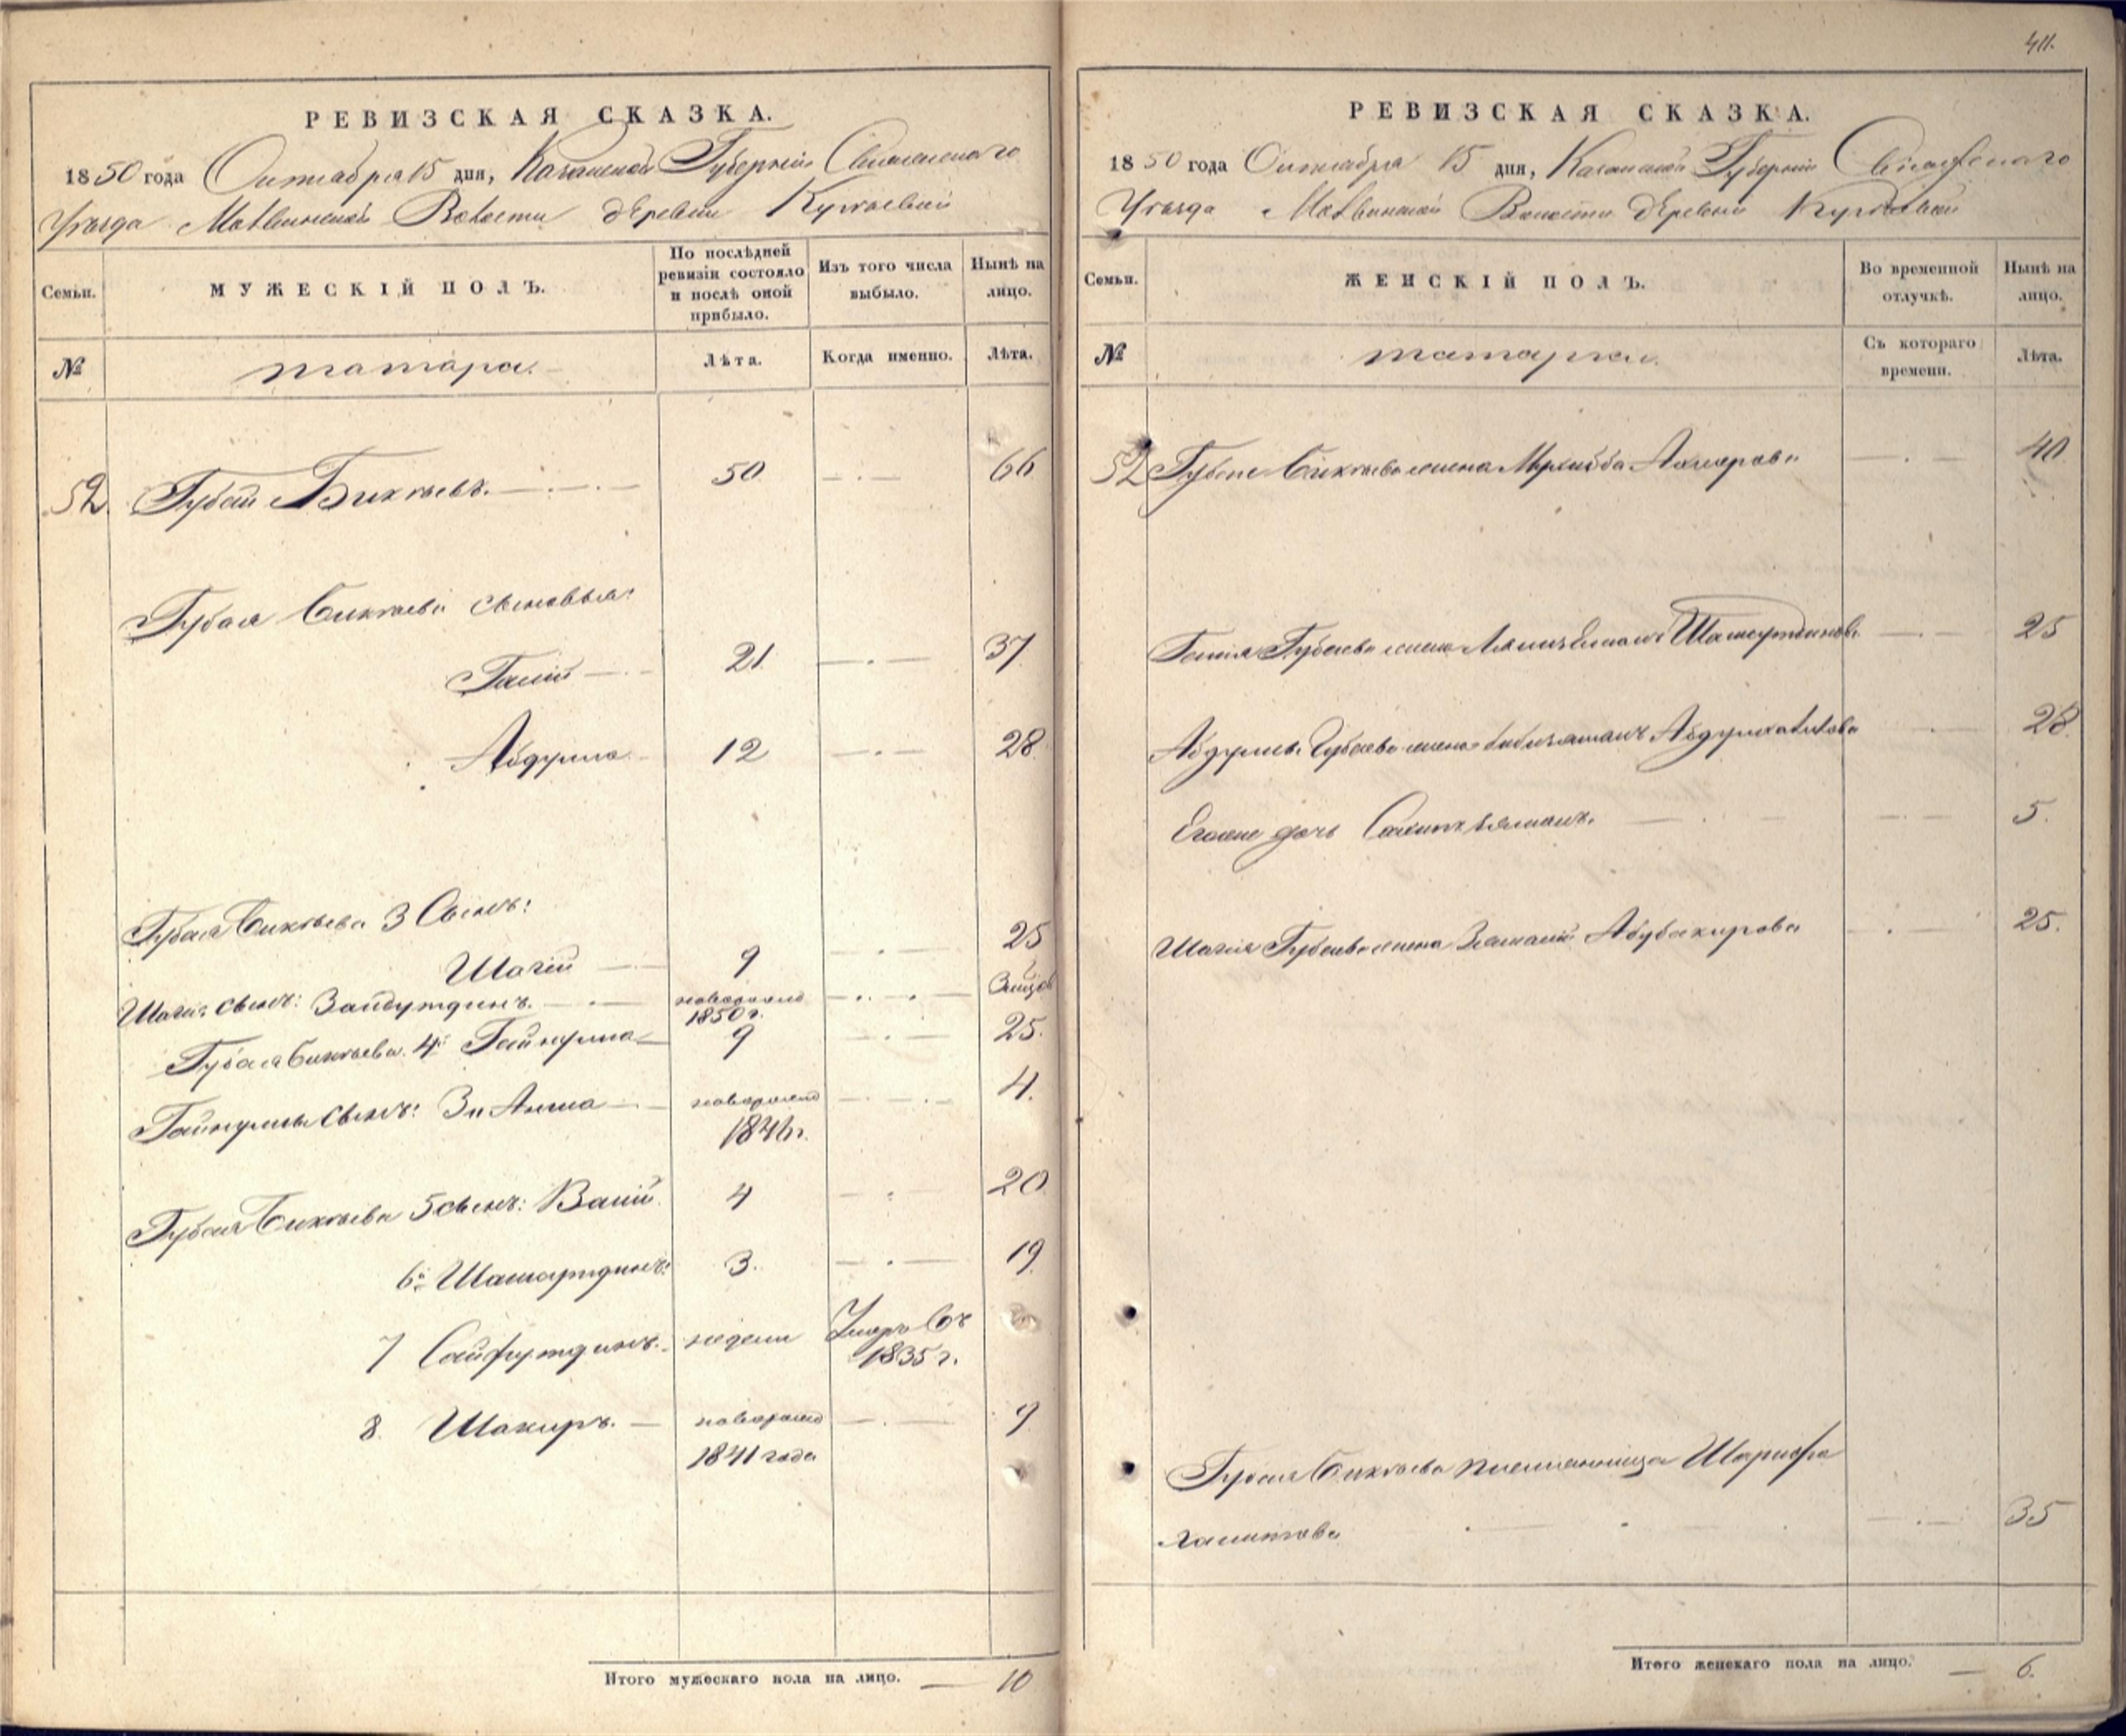 411.
РЕВИЗСКАЯ СКАЗКА.
1850 года Октября 15 дня, Казанской Губернiи Свiяжскаго
Уѣзда Волости деревни
Семьи.
МУЖЕСКIЙ ПОЛЪ.
По послѣдней ревизiи состояло и послѣ оной прибыло.
Изъ того числа выбыло.
Нынѣ на лицо.
№
татара.
Лѣта.
Когда именно.
Лѣта.
52. Губай Бикѣевъ. 50 66
Губая Бикѣева сыновья:
Галiй 21 37
Абдулла 12 28
Губая Бикѣева 3 Сынъ:
Шагiй 9 25
Шагiя сынъ: Зайбутдинъ. новорожд 1850 г.
Губая Бикѣева 4й Гайнулла 9 25.
Гайнуллы сынъ: новорожд 184 г. 4.
Губая Бикѣева 5 сынъ: Валiй 4 20
6й 3. 19
7 Сайфутдинъ. недели Умеръ въ 1835 г.
8. Шакиръ. новорожд 1841 года 9
Итого мужескаго пола на лицо. 10
РЕВИЗСКАЯ СКАЗКА.
1850 года Октября 15 дня, Казанской Губернiи Свiяжскаго
Уѣзда Волости деревни
Семьи.
ЖЕНСКIЙ ПОЛЪ.
Во временной отлучкѣ.
Нынѣ на лицо.
№
татарки.
Съ котораго времени.
Лѣта.
52 Губая Бикѣева жена 40
Галiя Губаева жена 25
Абдуллы Губаева жена 28
Его же дочь 5.
Шагiя Губаева жена Абубакирова 25.
Губая Бикѣева племянница Шарифа
Халитова 35
Итого женскаго пола на лицо. 6.